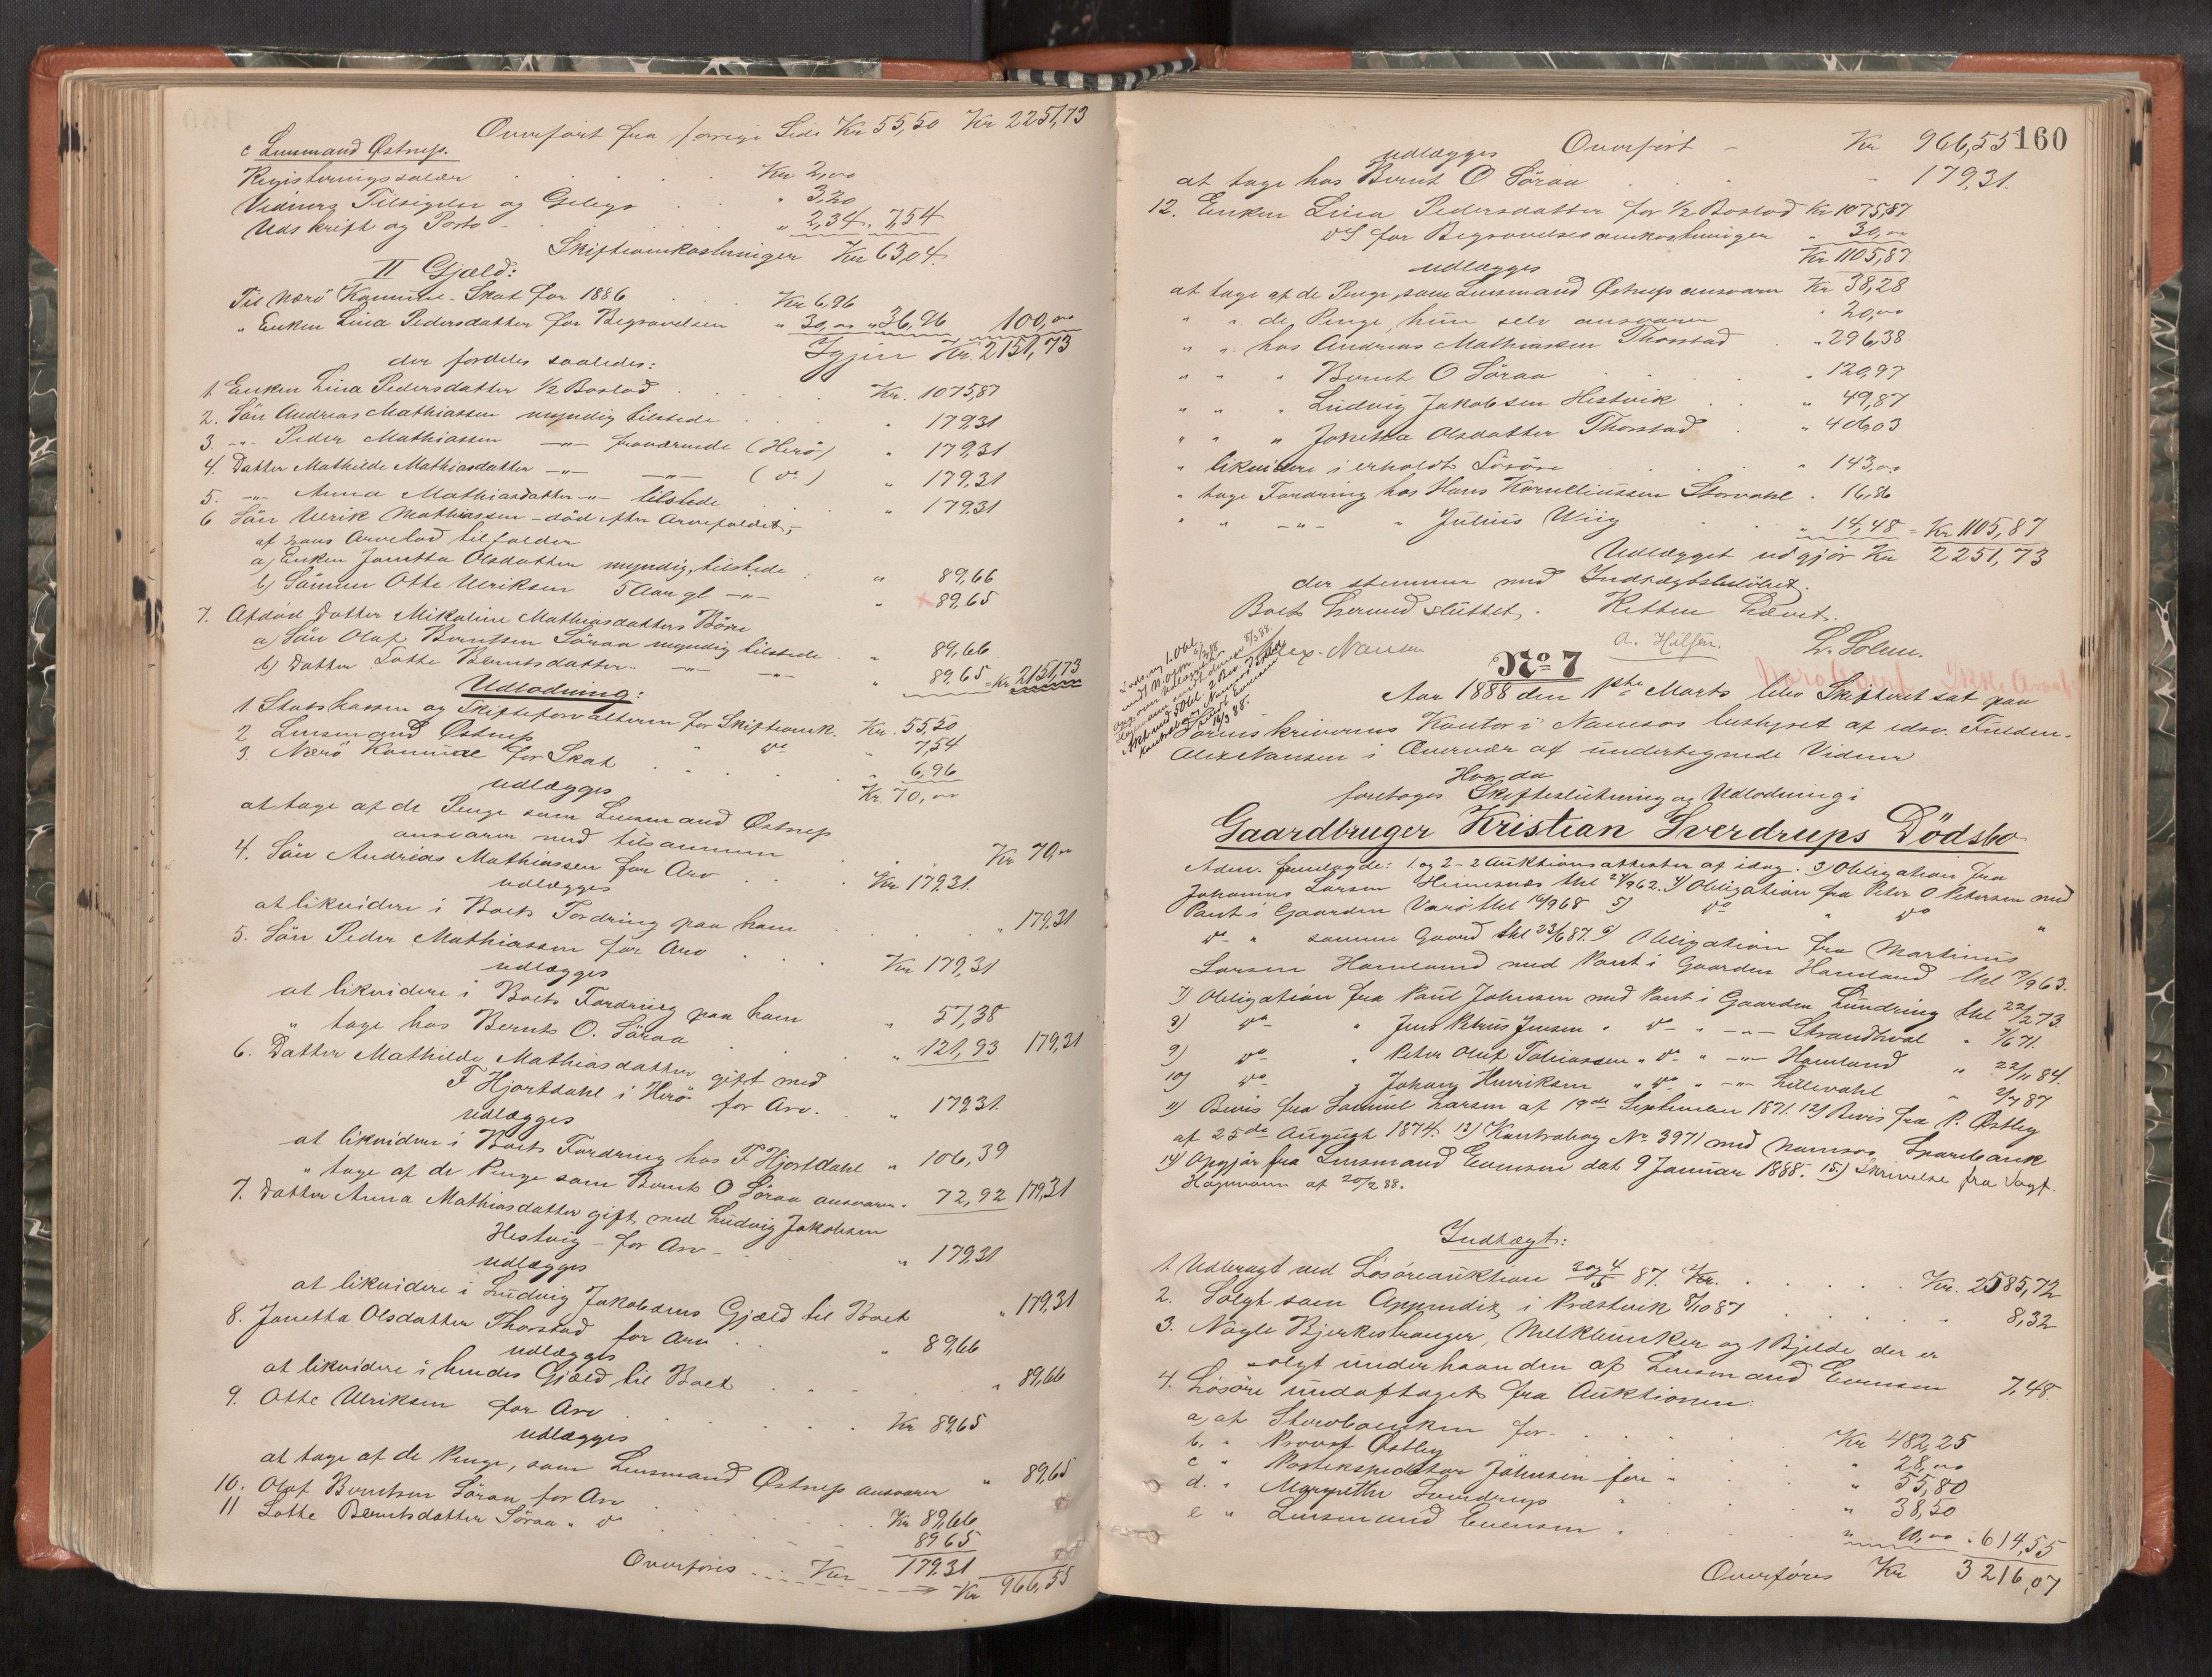 Overført fra forrige Side Kr 55,50 Kr 2251,73
c Lensmand Østrup.
Registreringssalær Kr 2,00
Vidners Tilsigelse og Gebyr " 3,20
Udskrift og Porto " 2,34 " 7,54
Skifteomkostninger Kr 63,04.
II Gjæld:
Til Nærö Kommune - Skat for 1886 Kr 6,96
" Enken Lina Pedersdatter for Begravelsen " 30,00 " 36,96 100,00
Igjen Kr. 2151,73
der fordeles saaledes:
1. Enken Lina Pedersdatter 1/2 Boslod Kr. 1075,87
2. Sön Andreas Mathiassen myndig tilstede " 179,31
3. -"- Peder Mathiassen -"- fraværende (Herö) " 179,31
4. Datter Mathilde Mathiasdatter -"- -"- (do) " 179,31
5. -"- Anna Mathiasdatter -"- tilstede " 179,31
6 Sön Ulrik Mathiassen - död efter Arvefaldet,
af hans Arvelod tilfalder
a) Enken Janetta Olsdatter myndig, tilstede " 89,66
b) Sønnen Otte Ulriksen 5 Aar gl -"- " 89,65
7. Afdöd Datter Mikaline Mathiasdatters Börn
a) Sön Olaf Berntsen Söraa myndig tilstede " 89,66
b) Datter Lotte Berntsdatter -"- -"- " 89,65 = Kr. 2151,73
Udlodning:
1. Statskassen og Skifteforvalteren for Skifteomk. Kr. 55,50
2 Lensmand Østrup do " 7,54
3. Nærö Kommune for Skat " 6,96
udlægges Kr. 70,00
at tage af de Penge som Lensmand Østrup
ansvarer med tilsammen Kr 70,00
4. Sön Andreas Mathiassen for Arv Kr 179,31.
udlægges
at likvidere i Boets Fordring paa ham " 179,31
5. Sön Peder Mathiassen for Arv Kr 179,31
udlægges
at likvidere i Boets Fordring paa ham " 57,38
" tage hos Bernt O. Söraa " 121,93 179,31
6. Datter Mathilde Mathiasdatter gift med
F Hjortdahl i Herö for Arv. " 179,31.
udlægges
at likvidere i Boets Fordring hos F Hjortdahl " 106,39
" tage af de Penge som Bernt O Söraa ansvarer " 72,92 179,31
7. Datter Anna Mathiasdatter gift med Ludvig Jakobsen
Hestvig - for Arv - " 179,31
udlægges
at likvidere i Ludvig Jakobsens Gjæld til Boet " 179,31
8. Janetta Olsdatter Thorstad for Arv " 89,66
udlægges
at likvidere i hendes Gjæld til Boet " 89,66
9. Otte Ulriksen for Arv Kr 89,65
udlægges
at tage af de Penge, som Lensmand Østrup ansvarer " 89,65
10. Olaf Berntsen Söraa for Arv Kr 89,66
11 Lotte Berntsdatter Söraa " do 89 65
Overføres Kr 179,31 Kr 966,55
160
Overført - Kr 966,55
udlægges
at tage hos Bernt O Söraa " 179,31.
12. Enken Lina Pedersdatter for 1/2 Boslod Kr 1075,87
do for Begravelsesomkostninger " 30,00
Kr 1105,87
udlægges
at tage af de Penge, som Lensmand Østrup ansvarer Kr 38,28
" " de Penge, hun selv ansvarer " 20,00
" " hos Andreas Mathiassen Thorstad " 296,38
" " " Bernt O Söraa " 120,97
" " " Ludvig Jakobsen Hestvik " 49,87
" " " Janetta Olsdatter Thorstad " 406,03
" likvidere i erholdt Lösöre " 143,00
" tage Fordring hos Hans Kornelliussen Storvahl " 16,86
" " -"- " Julius Wiig " 14,48 = Kr 1105,87
Udlægget udgjør Kr 2251,73
der stemmer med Indtægtsbeløbet.
Boet hermed sluttet. Retten hævet.
Alex. Nansen A. Hilsen. L. Solem.
No 7
Aar 1888 den 1ste Marts blev Skifteret sat paa
Sorenskriverens Kontor i Namsos bestyret af edsv. Fuldm.
Alex Nansen i Overvær af undertegnede Vidner
Hvor da
foretages Skifteslutning og Udlodning i
Gaardbruger Kristian Sverdrups Dödsbo
Adm. fremlagde: 1 og 2 - 2 Auktionsattester af idag. 3) Obligation fra
Johannes Larsen Heimsnæs thl 24/9 62. 4) Obligation fra Peter O Petersen med
Pant i Gaarden Varö thl 16/9 68 5) do " do "
do " samme Gaard thl 23/6 87. 6) Obligation fra Martinus
Larsen Hamland med Pant i Gaarden Hamland thl 17/9 63.
7) Obligation fra Paul Johnsen med Pant i Gaarden Lundring thl 22/2 73.
8) do " Jens Petrus Jensen " do " -"- Strandhval " 7/6 71.
9) do " Peter Oluf Tobiassen " do " -"- Hamland " 22/11 84.
10) do " Johan Henriksen " do " -"- Lillevahl " 2/7 87
11) Bevis fra Samuel Larsen af 19de September 1871. 12) Bevis fra P. Østby
af 25de August 1874. 13) Kontrabog No 3971 med Namsos Sparebank
14) Opgjör fra Lensmand Evensen dat 9 Januar 1888. 15.) Skrivelse fra Vogt.
Hagemann af 20/2 88.
Indtægt:
1. Udbragt ved Lösöreauktion 3 og 4/5 87. Kr. 2585,72
2. Solgt som Appendix i Præstvik 8/10 87 8,32
3. Nogle Bjerkestranger, Melkebunker og 1 Bjelde der er
solgt underhaanden af Lensmand Evensen 7,48
4. Lösöre undaftaget fra Auktionen:
a, af Stervboenken for Kr 482,25
b. " Provst Østbey " 28,00
c " Postekspeditør Johnsen for " " 55,80
d. " Margrethe Sverdrup " " 38,50
e " Lensmand Evensen " " 10,00 " 614,55
Overføres Kr 3216,07